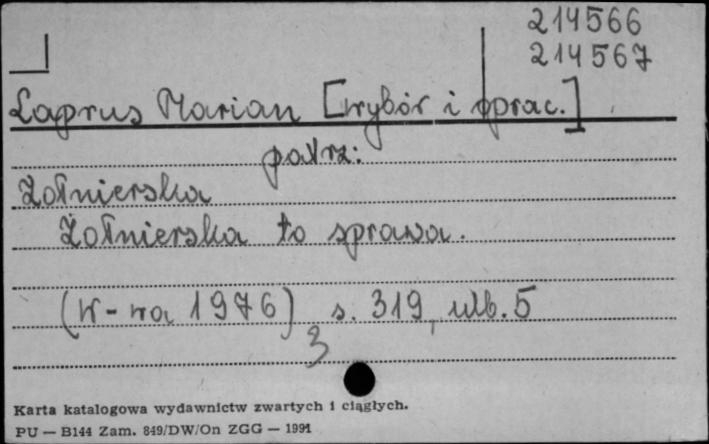 214566
214567
Laprus Marian [wybór i oprac.]
patrz:
Żołnierska
Żołnierska to sprawa.
(W-wa 1976) s. 319, ulb. 5
3
Karta katalogowa wydawnictw zwartych i ciągłych.
PU — B144 Zam. 849/DW/On ZGG — 1991